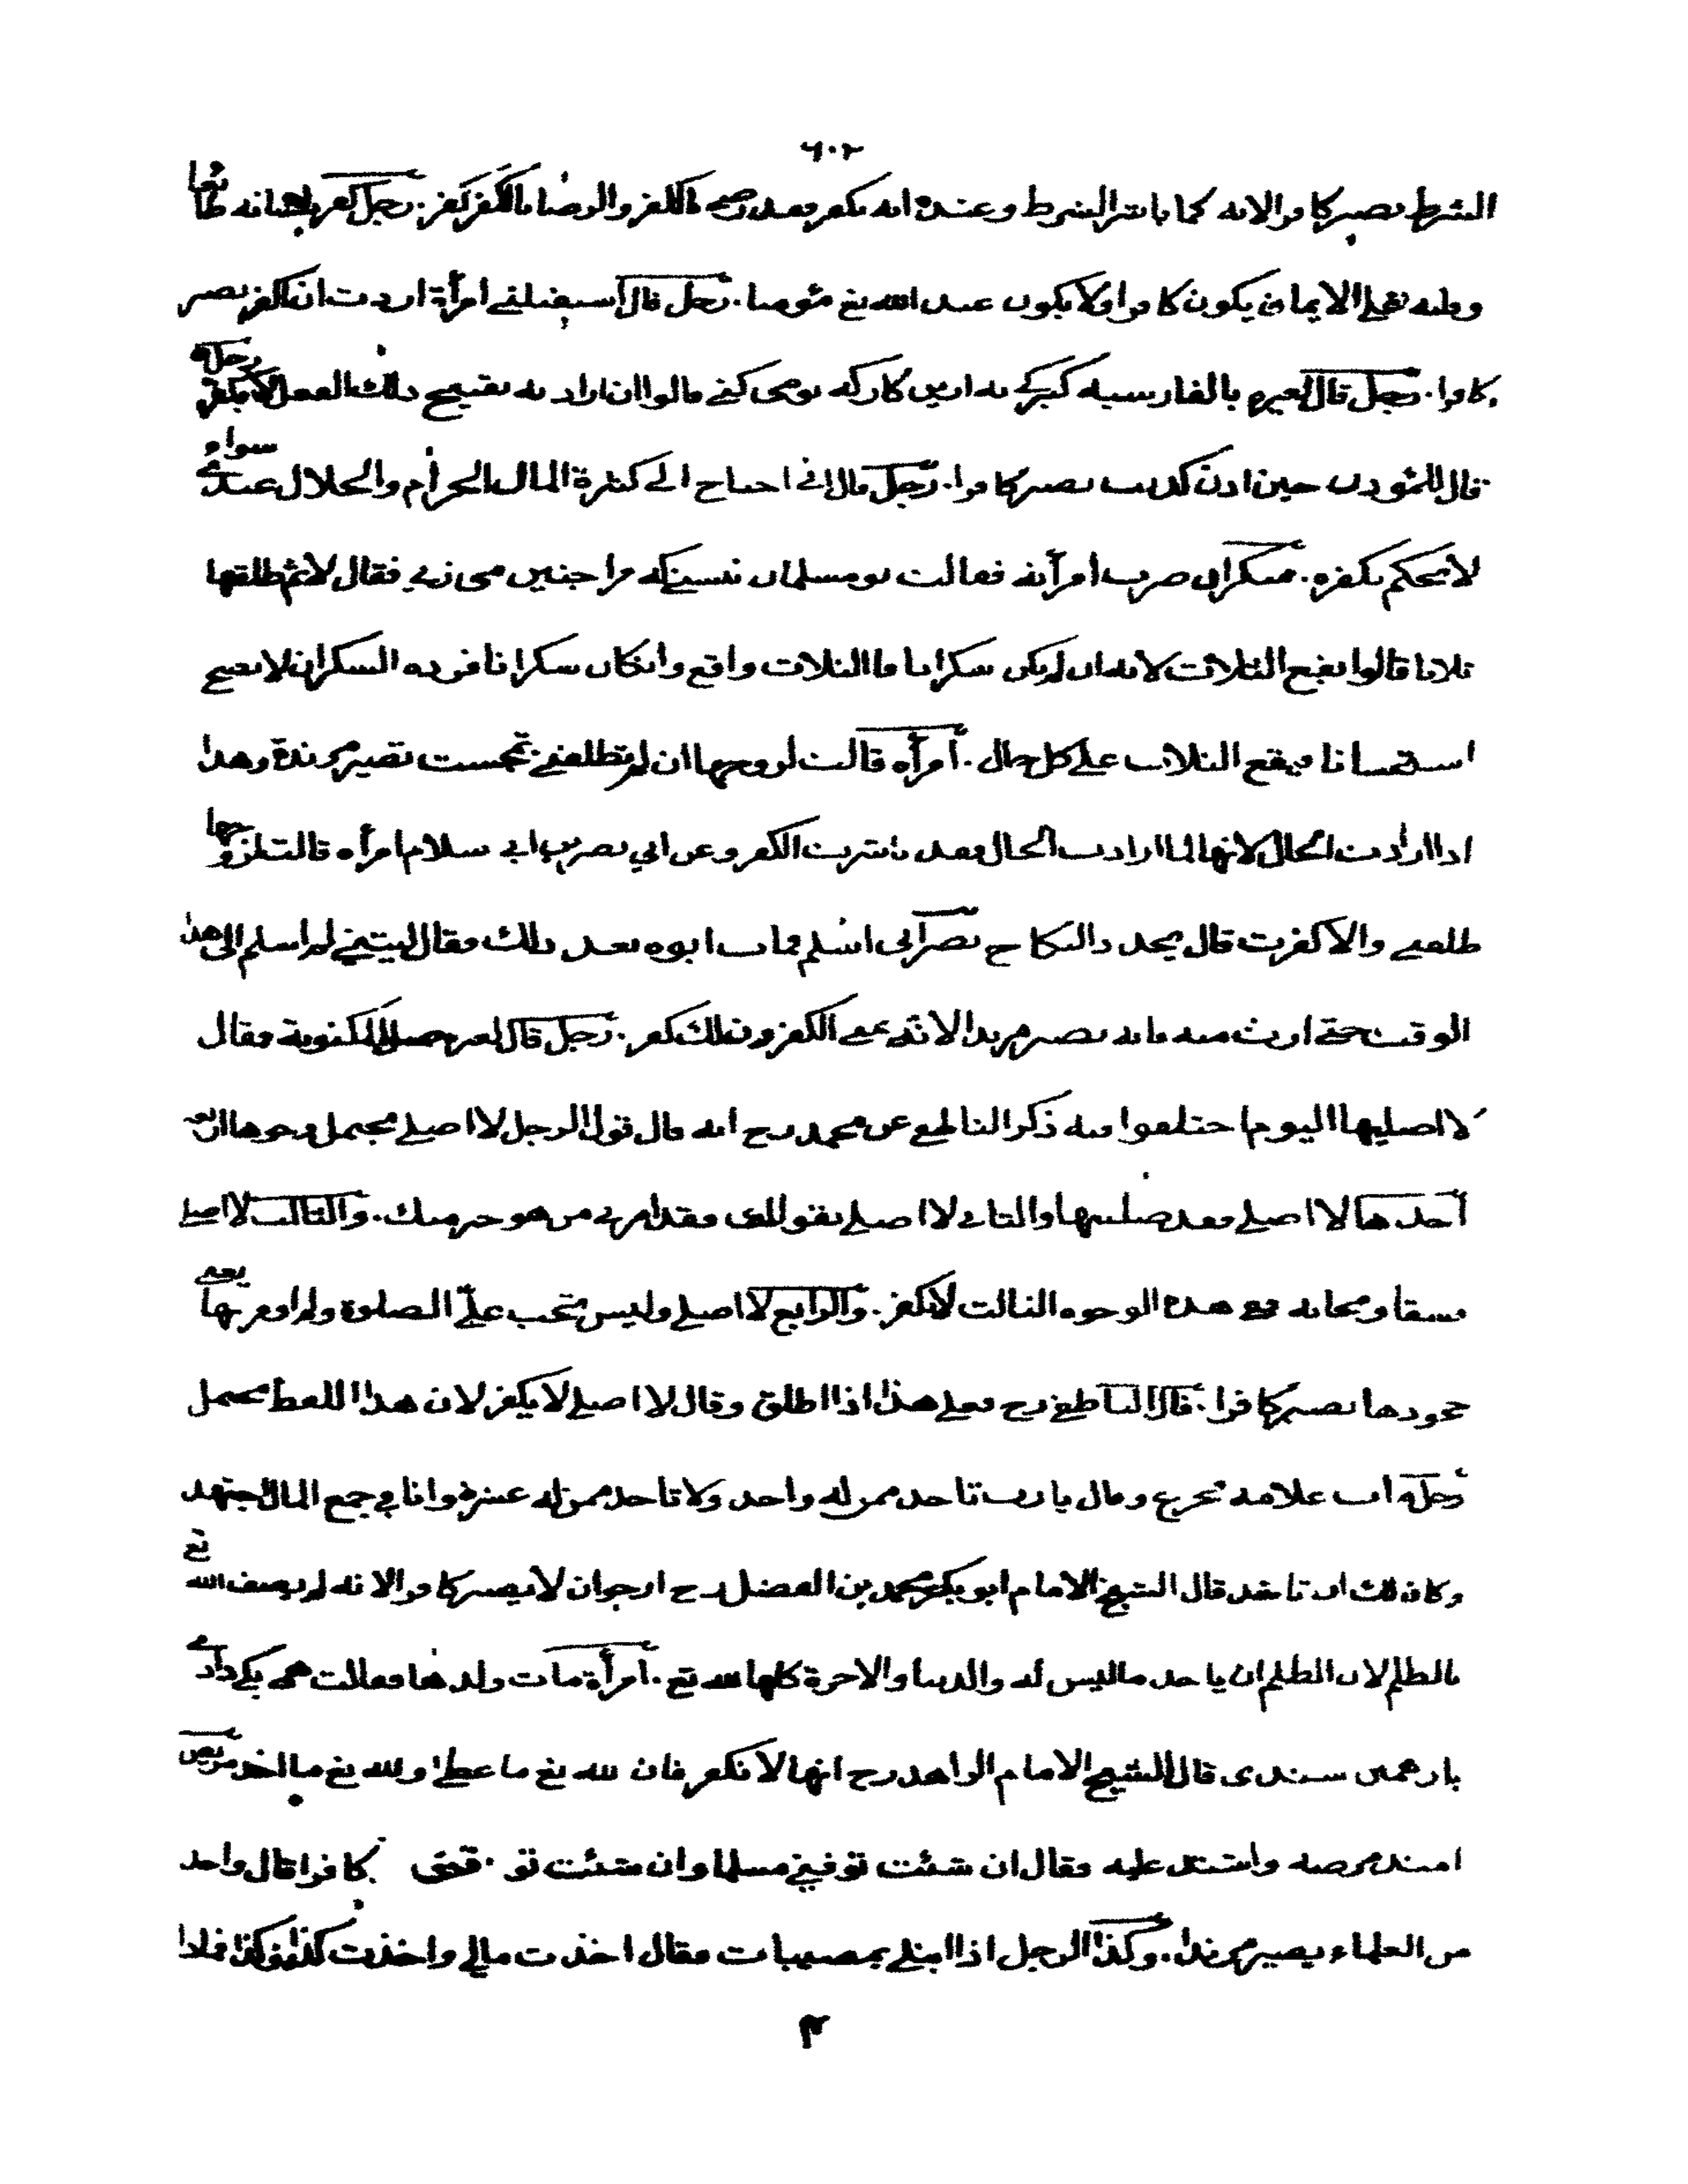 ٦٠٢
الشرط يصير كافرا لانه كما باشر الشرط وعنده انه يكفر فقد رضي بالكفر والرضا بالكفر كفر. رجل كفر بلسانه طائعا
وقلبه على الايمان يكون كافرا ولا يكون عند الله تع مؤمنا. رجل قال استقبلتني امرأة اردت ان اكفر يصير
كافرا. رجل قال لغيره بالفارسية كبركي به ازين كاركه تو مي كني قالوا ان اراد به تقبيح ذلك الفعل لا يكفر رجل
قال للمؤذن حين اذن كذبت يصير كافرا. رجل قال اني احتاج الى كثرة المال الحرام والحلال عندي سواء
لا يحكم بكفره. سكران ضرب امرأته فقالت تو مسلمان نيستي كه مرا چنين مي زني فقال لا ثم طلقها
ثلاثا قالوا يقع الثلاث لانه ان لم يكن سكرانا فالثلاث واقع وان كان سكرانا فردة السكران لا تصح
استحسانا فيقع الثلاث على كل حال. امرأه قالت لزوجها ان لم تطلقني تمجست تصير مرتدة وهذا
اذا ارادت الحال لانها لما ارادت الحال فقد باشرت الكفر وعن ابي نصر بن ابي سلام امرأه قالت لزوجها
طلقني والا كفرت قال يجدد النكاح نصراني اسلم فمات ابوه بعد ذلك فقال ليتني لم اسلم الى هذا
الوقت حتى ارث منه فانه يصير مرتدا لانه تمنى الكفر وذلك كفر. رجل قال لغيره صل المكتوبة فقال
لا اصليها اليوم اختلفوا فيه ذكر الناطفي عن محمد رح انه قال قول الرجل لا اصلي يحتمل وجوها اربعة
احدها لا اصلي فقد صليتها والثاني لا اصلي بقولك فقد امرني من هو خير منك. والثالث لا اصلي
فسقا ومجانة ففي هذه الوجوه الثالث لا يكفر. والرابع لا اصلي وليس تجب علي الصلوة ولم اومر بها يعني
جحودها يصير كافرا. قال الناطفي رح فعلى هذا اذا اطلق وقال لا اصلي لا يكفر لان هذا اللفظ محتمل
رجل ابق غلامه فخرج وقال يا رب تاخذ ممن له واحد ولا تاخذ ممن له عشرة وانا في جمع المال اجتهد
وكان لك ان تاخذ قال الشيخ الامام ابو بكر محمد بن الفضل رح ارجو ان لا يصير كافرا لانه لم يصف الله تع
بالظلم لان الظلم ان ياخذ ما ليس له والدنيا والاخرة كلها لله تع. امرأة مات ولدها فقالت همي يكي دادي
باز همين ستدي قال الشيخ الامام الزاهد رح انها لا تكفر فان لله تع ما عطى ولله تع ما اخذ مريض
امتد مرضه واشتد عليه فقال ان شئت توفني مسلما وان شئت توفني كافرا قال واحد
من العلماء يصير مرتدا. وكذا الرجل اذا ابتلي بمصيبات فقال اخذت مالي واخذت كذا وكذا فماذا